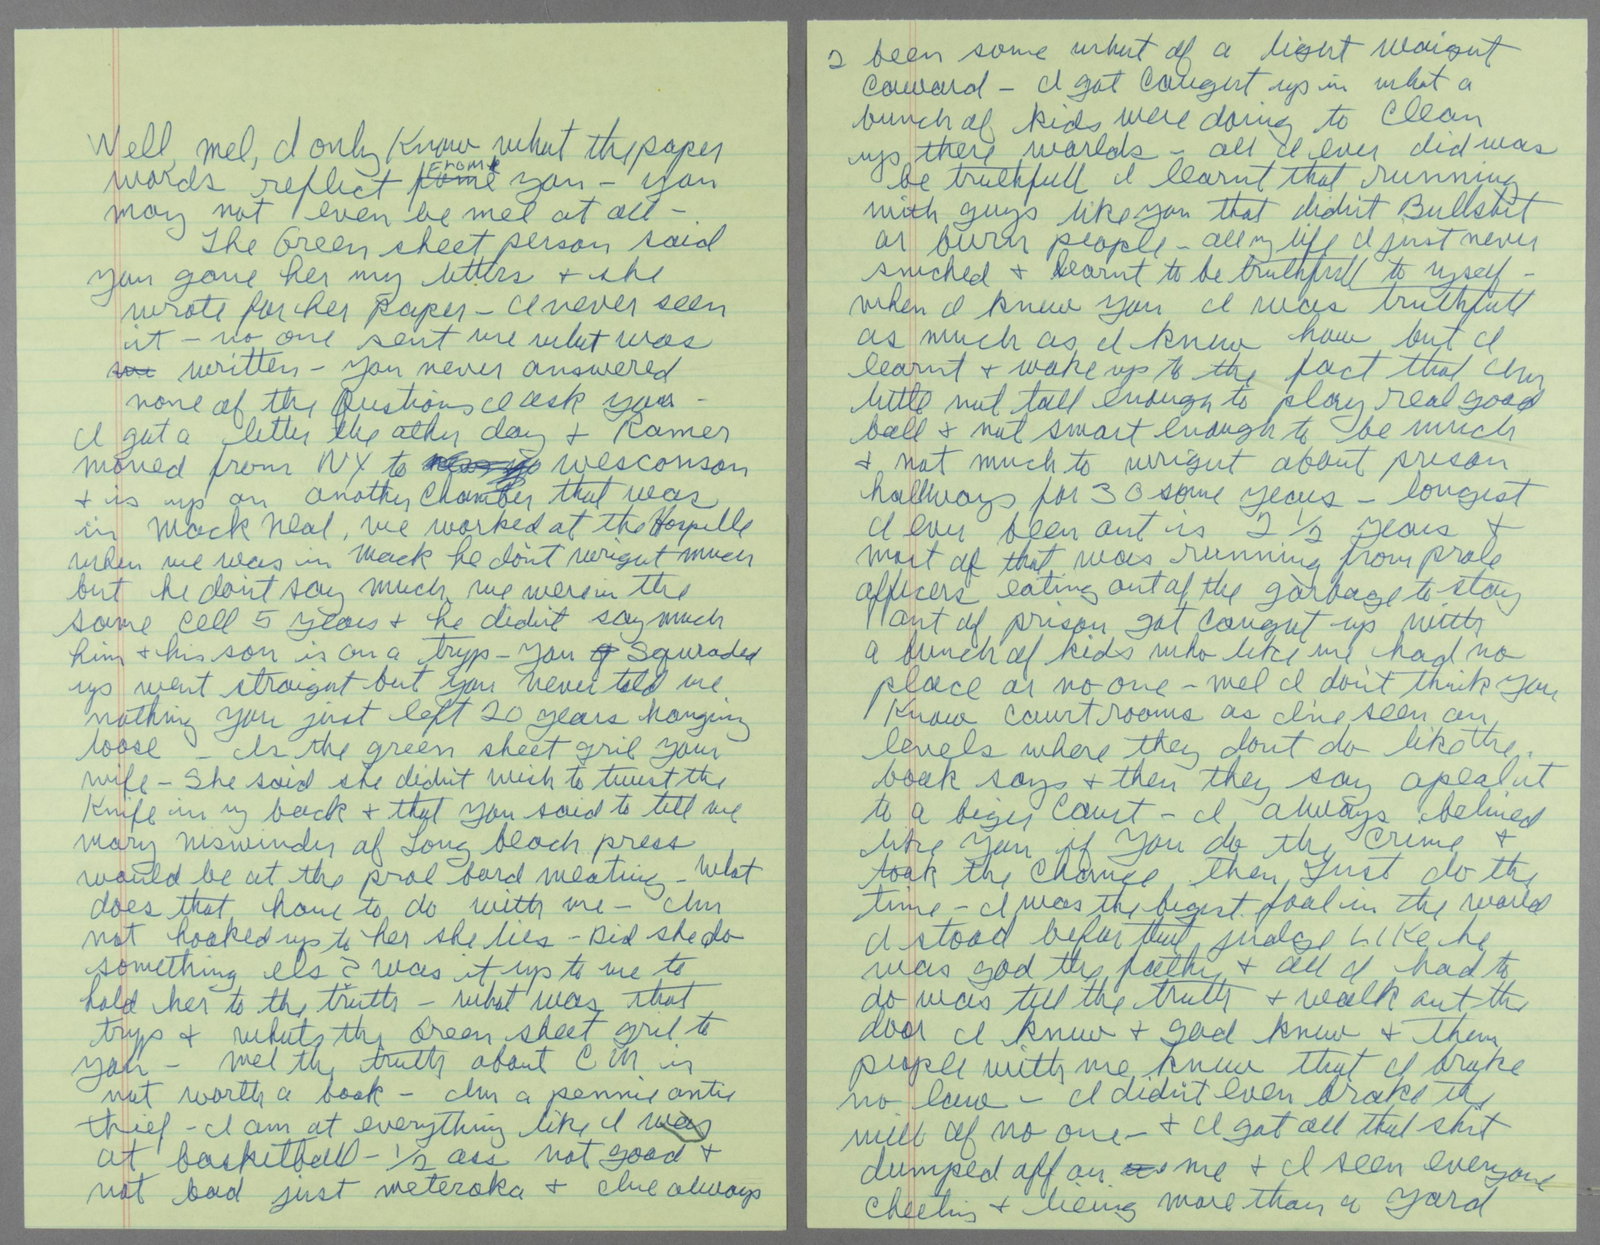 Well, mel, I only Know what the paper
words reflect from you – you
may not even be mel at all –
The Green sheet person said
you gave her my letters + she
wrote for her paper – I never seen
it – no one sent me what was
written – you never answered
none of the Qustions I ask you –
I got a letter the other day + Ramer
moved from NY to wesconson
+ is up on another chamber that was
in Mack Neal, we worked at the Hospitle
when we was in Mack he don't wright much
but he don't say much we were in the
same cell 5 years + he didn't say much
him + his son is on a tryp – you Squraded
up went straight but you never told me
nothing you just left 20 years hanging
loose – Is the green sheet gril your
wife – She said she didn't wish to twist the
Knife in my back + that you said to tell me
mary niswinder of Long beach press
would be at the prol bord meating – what
does that have to do with me – Im
not hooked up to her she lies – Did she do
something els? was it up to me to
hold her to the truth – what was that
tryp + whats the Green sheet gril to
you – mel the truth about CM is
not worth a book – Im a pennie antie
thief – I am at everything like I was
at basketball – 1/2 ass not good +
not bad just meteroka + I've always
2 been some what of a light waight
coward – I got caught up in what a
bunch of kids were doing to clean
up there worlds – all I ever did was
be truthfull I learnt that running
with guys like you that didn't Bullshit
or burn people – all my life I just never
sniched + learnt to be truthfull to myself –
when I knew you I was truthfull
as much as I knew how but I
learnt + wake up to the fact that Im
little not tall enough to play real good
ball + not smart enough to be much
+ not much to wright about prison
hallways for 30 some years – longest
I ever been out is 2 1/2 years +
most of that was running from prole
officers eating out of the garbage to stay
out of prison got caught up with
a bunch of kids who like me had no
place or no one – mel I don't think you
Know courtrooms as I've seen on
levels where they don't do like the
book says + then they say apeal it
to a biger court – I always belived
like you if you do the crime +
took the chance then just do the
time – I was the bigest fool in the world
I stood befor that judge LIKE he
was god the father + all I had to
do was tell the truth + walk out the
door I knew + god knew + them
people with me knew that I brake
no law – I didn't even brake the
will of no one – + I got all that shit
dumped off on me + I seen everyone
cheeting + lieing more than a yard